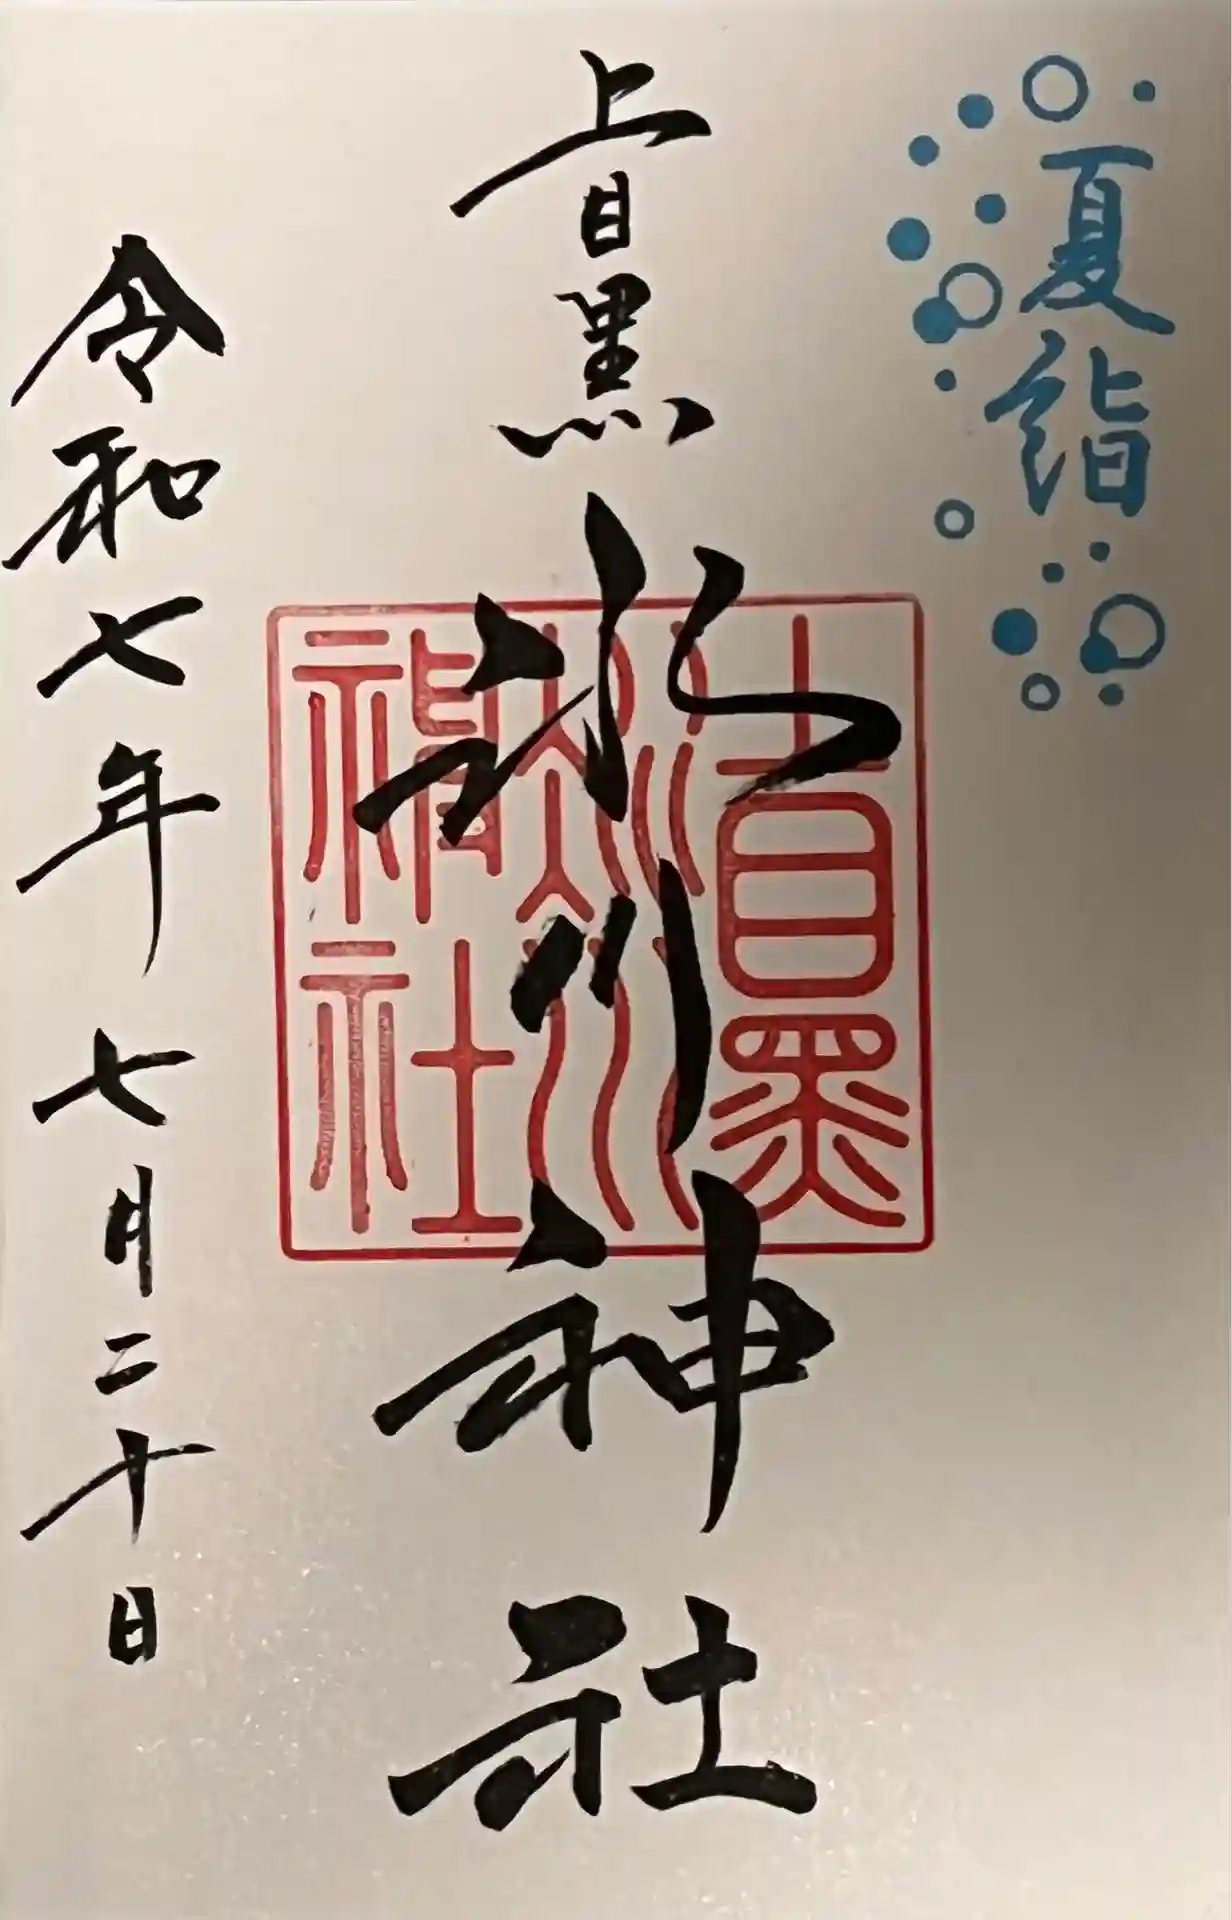 夏詣
上目黒
氷川神社
上目黒
氷川
神社
令和七年七月二十日